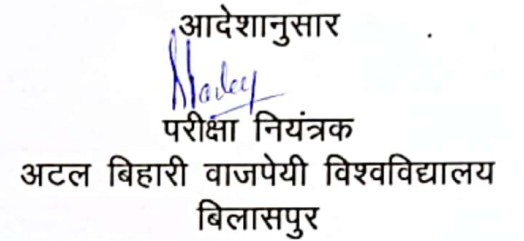 आदेशानुसार
परीक्षा नियंत्रक
अटल बिहारी वाजपेयी विश्वविद्यालय
बिलासपुर